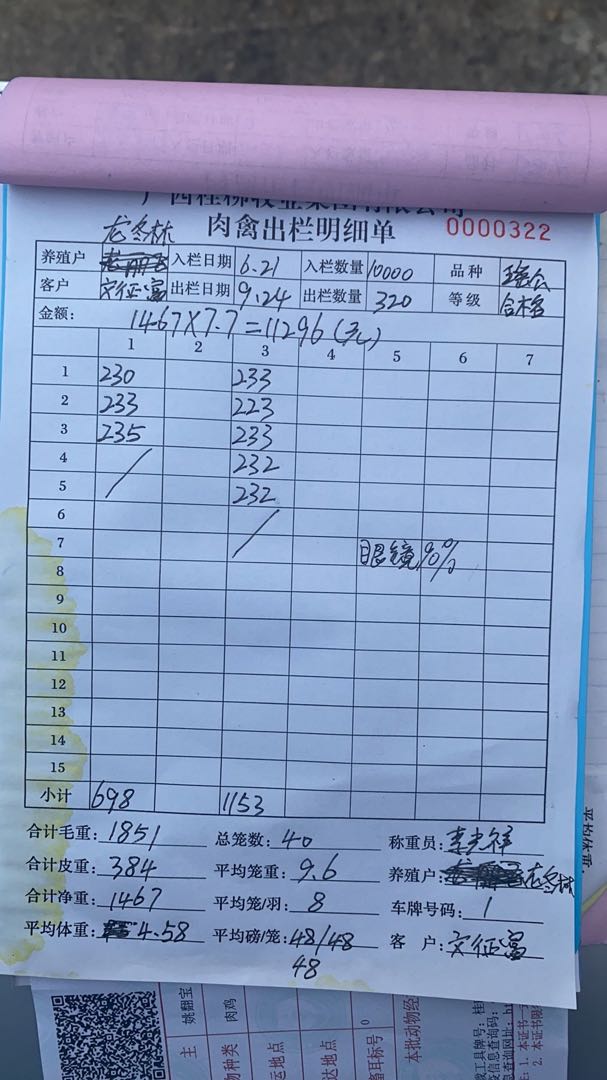 肉禽出栏明细单 0000322
龙冬林
养殖户 入栏日期 6.21 入栏数量 10000 品种
客户 文征富 出栏日期 9.24 出栏数量 320 等级 合格
金额: 1467×7.7=11296(元)
1 2 3 4 5 6 7
1 230 233
2 233 223
3 235 233
4 / 232
5 232
6 /
7 眼镜 90%
8
9
10
11
12
13
14
15
小计 698 1153
合计毛重: 1851 总笼数: 40 称重员: 李光祥
合计皮重: 384 平均笼重: 9.6 养殖户: 龙冬林
合计净重: 1467 平均笼/羽: 8 车牌号码: 1
平均体重: 4.58 平均磅/笼: 48/48 客 户: 文征富
48
姚翻宝
肉鸡
主
物种类
运地点
达地点
备耳标号
0
本批动物经